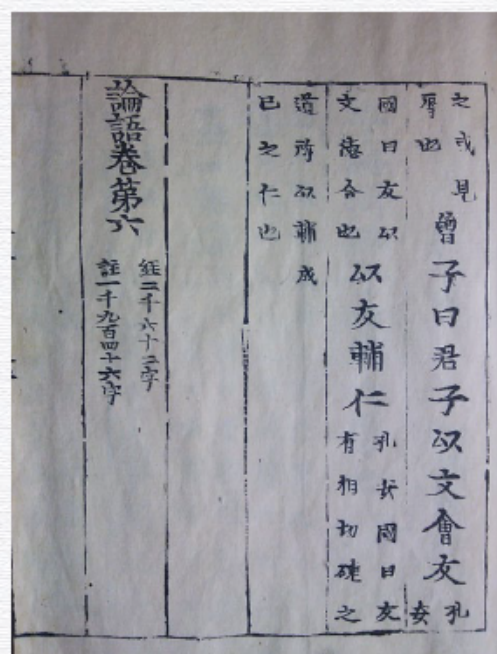 之或見辱也曾子曰君子以文會友孔安
國曰友以文德合也以友輔仁孔安國曰友有相切磋之
道所以輔成已之仁也
論語卷第六經二千六十二字註一千九百四十六字